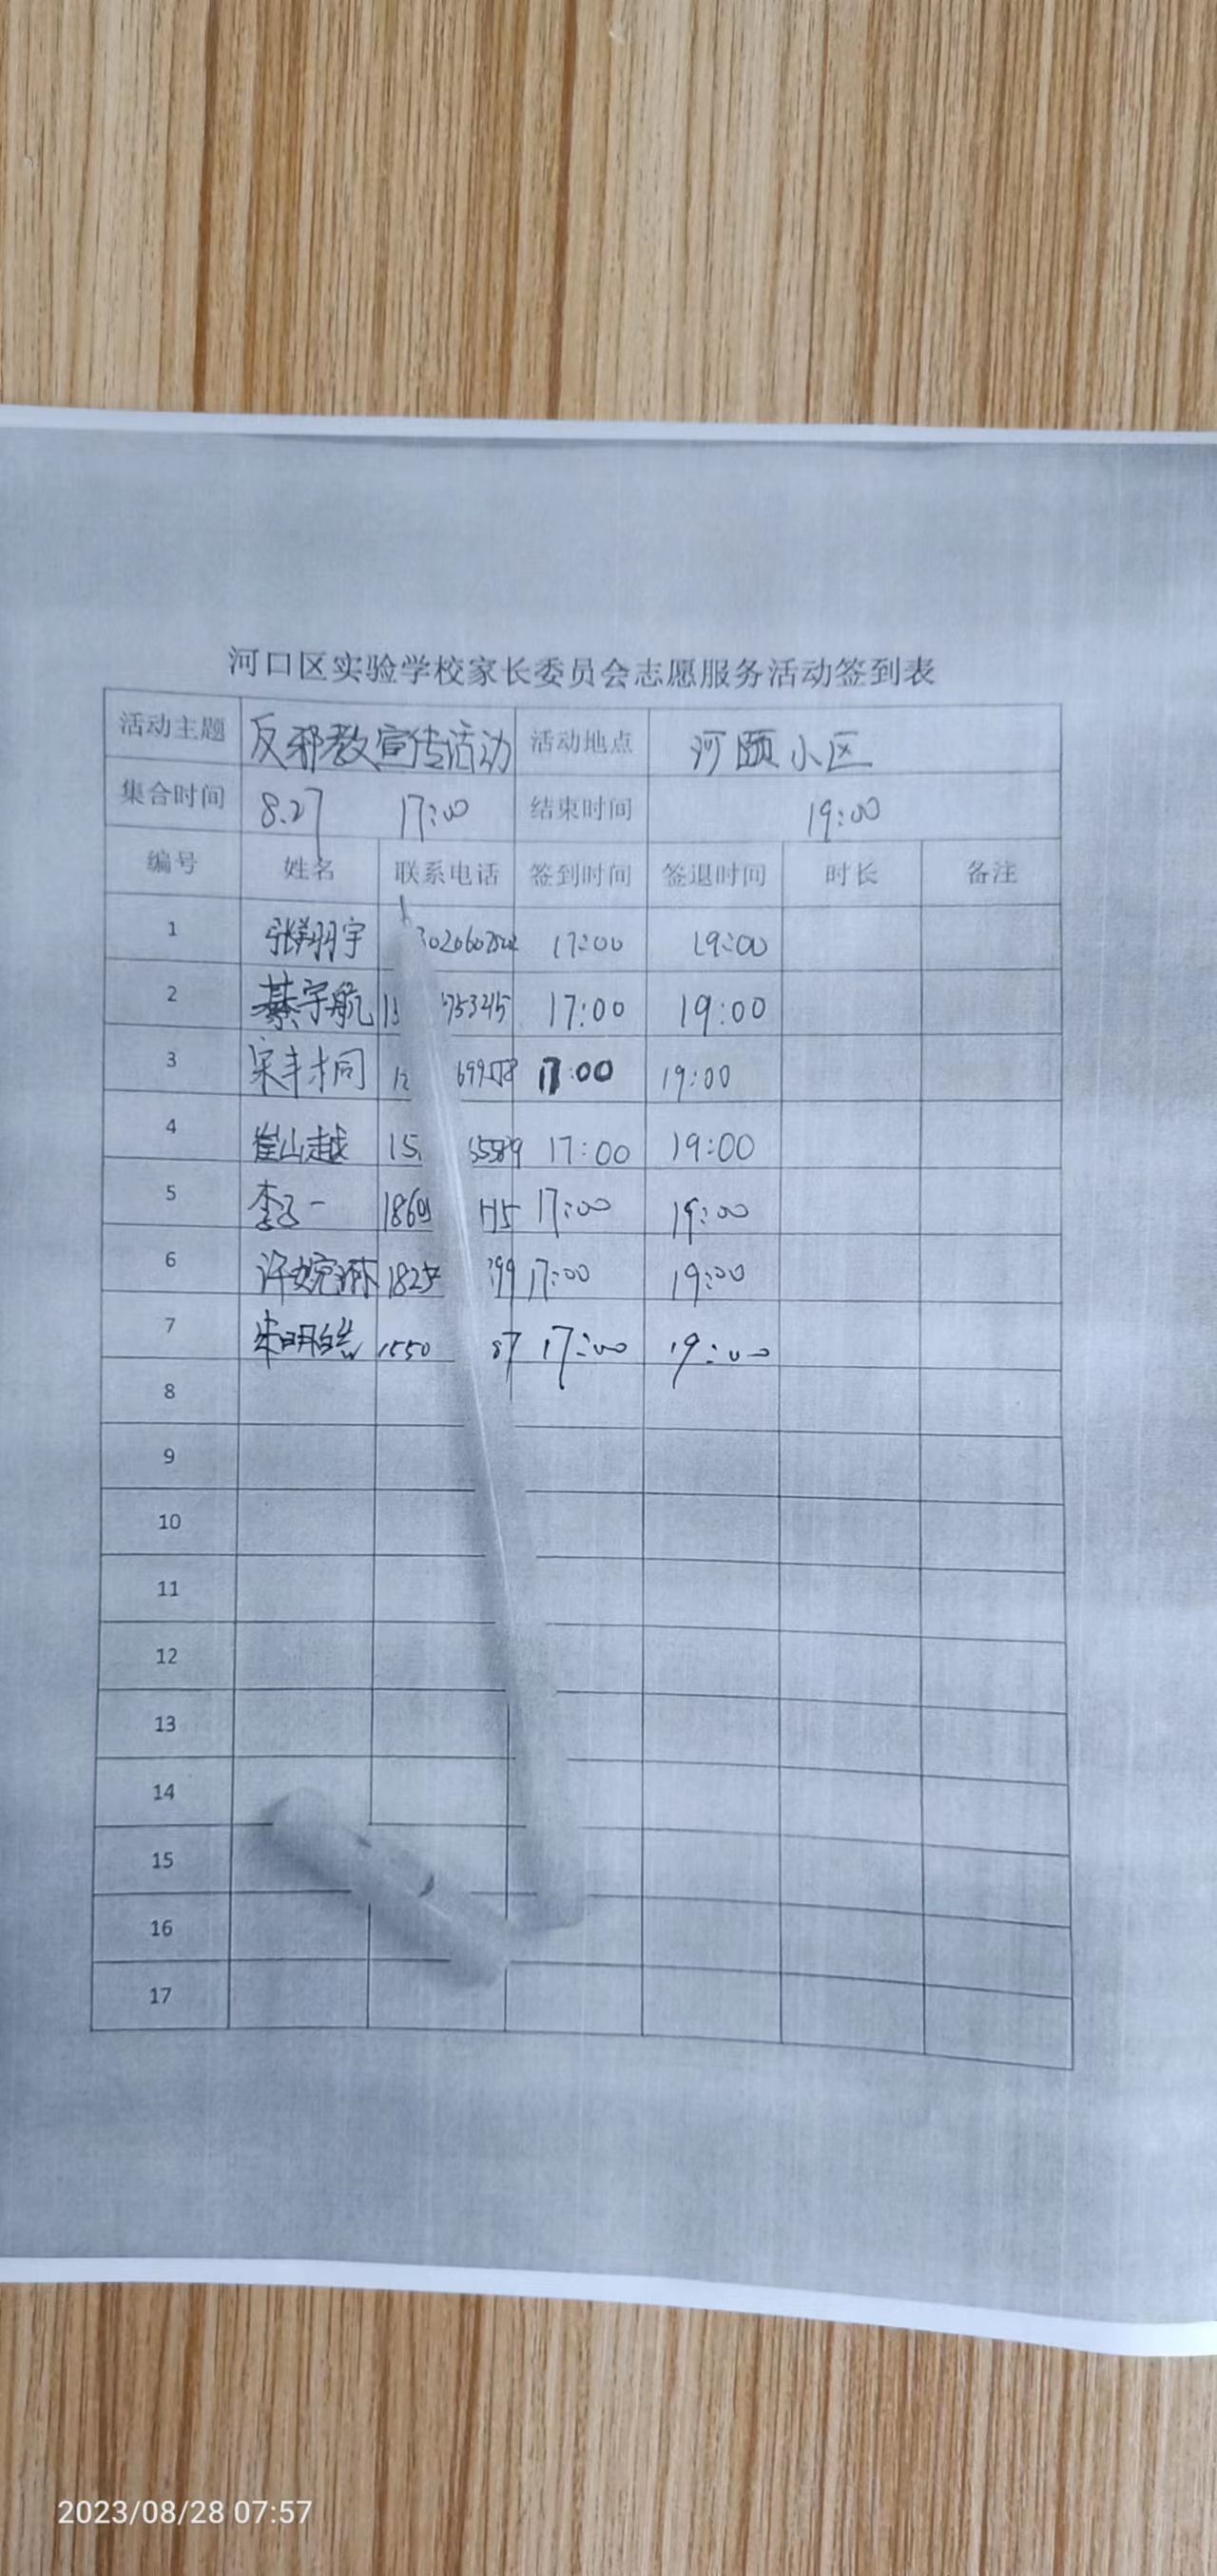 河口区实验学校家长委员会志愿服务活动签到表
活动主题 反邪教宣传活动 活动地点 河颐小区
集合时间 8.27 17:00 结束时间 19:00
编号 姓名 联系电话 签到时间 签退时间 时长 备注
1 张翔宇 17:00 19:00
2 綦宇航 13 753245 17:00 19:00
3 宋丰才同 17:00 19:00
4 崔山越 15 5589 17:00 19:00
5 李子一 186 17:00 19:00
6 许婉琳 182 99 17:00 19:00
7 1550 87 17:00 19:00
8
9
10
11
12
13
14
15
16
17
2023/08/28 07:57